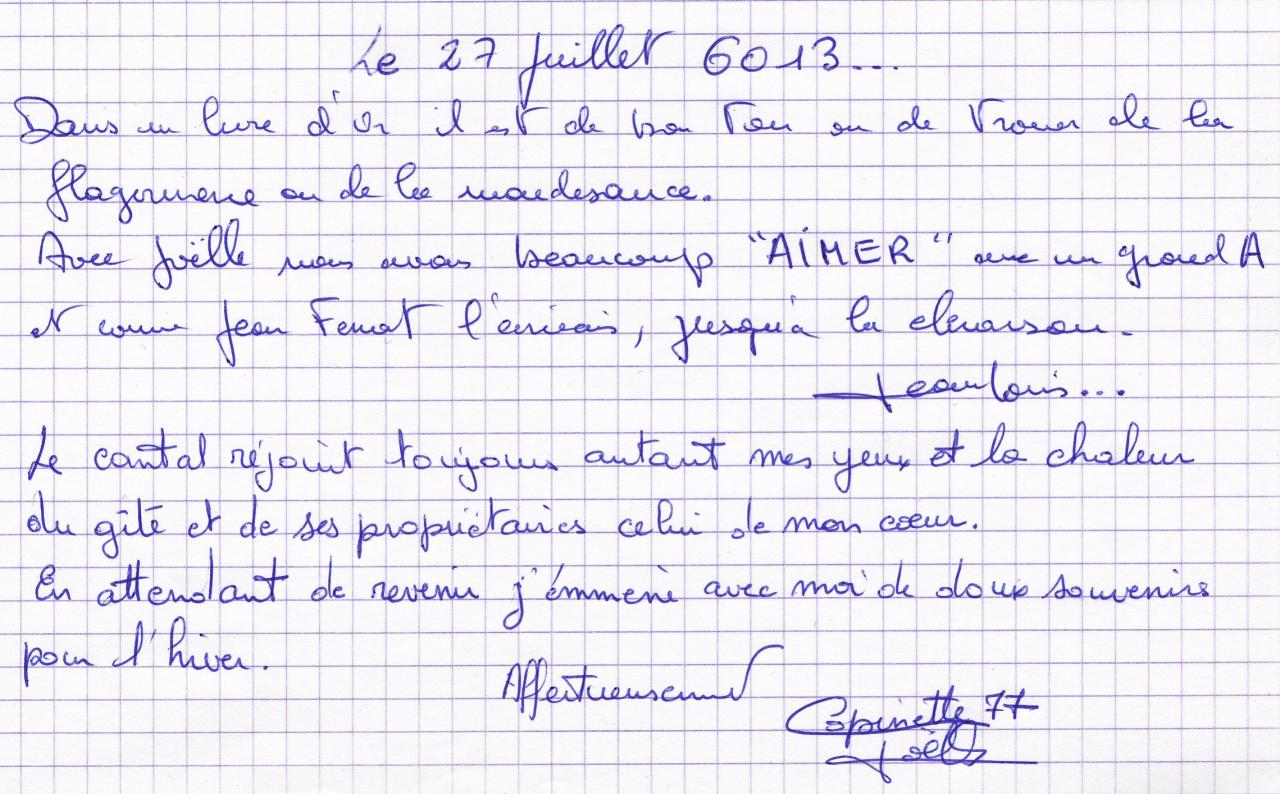 Le 27 juillet 6013...
Dans un livre d'or il est de bon ton ou de trouver de la
flagornerie ou de la médisance.
Avec Joëlle nous avons beaucoup "AIMER" avec un grand A
et comme Jean Ferrat l'écrivais, jusqu'à la déraison.
Jean Louis...
Le cantal réjouit toujours autant mes yeux et la chaleur
du gîte et de ses propriétaires celui de mon coeur.
En attendant de revenir j'émmene avec moi de doux souvenirs
pour l'hiver.
Affectueusement
Copinette 77
Joëlle